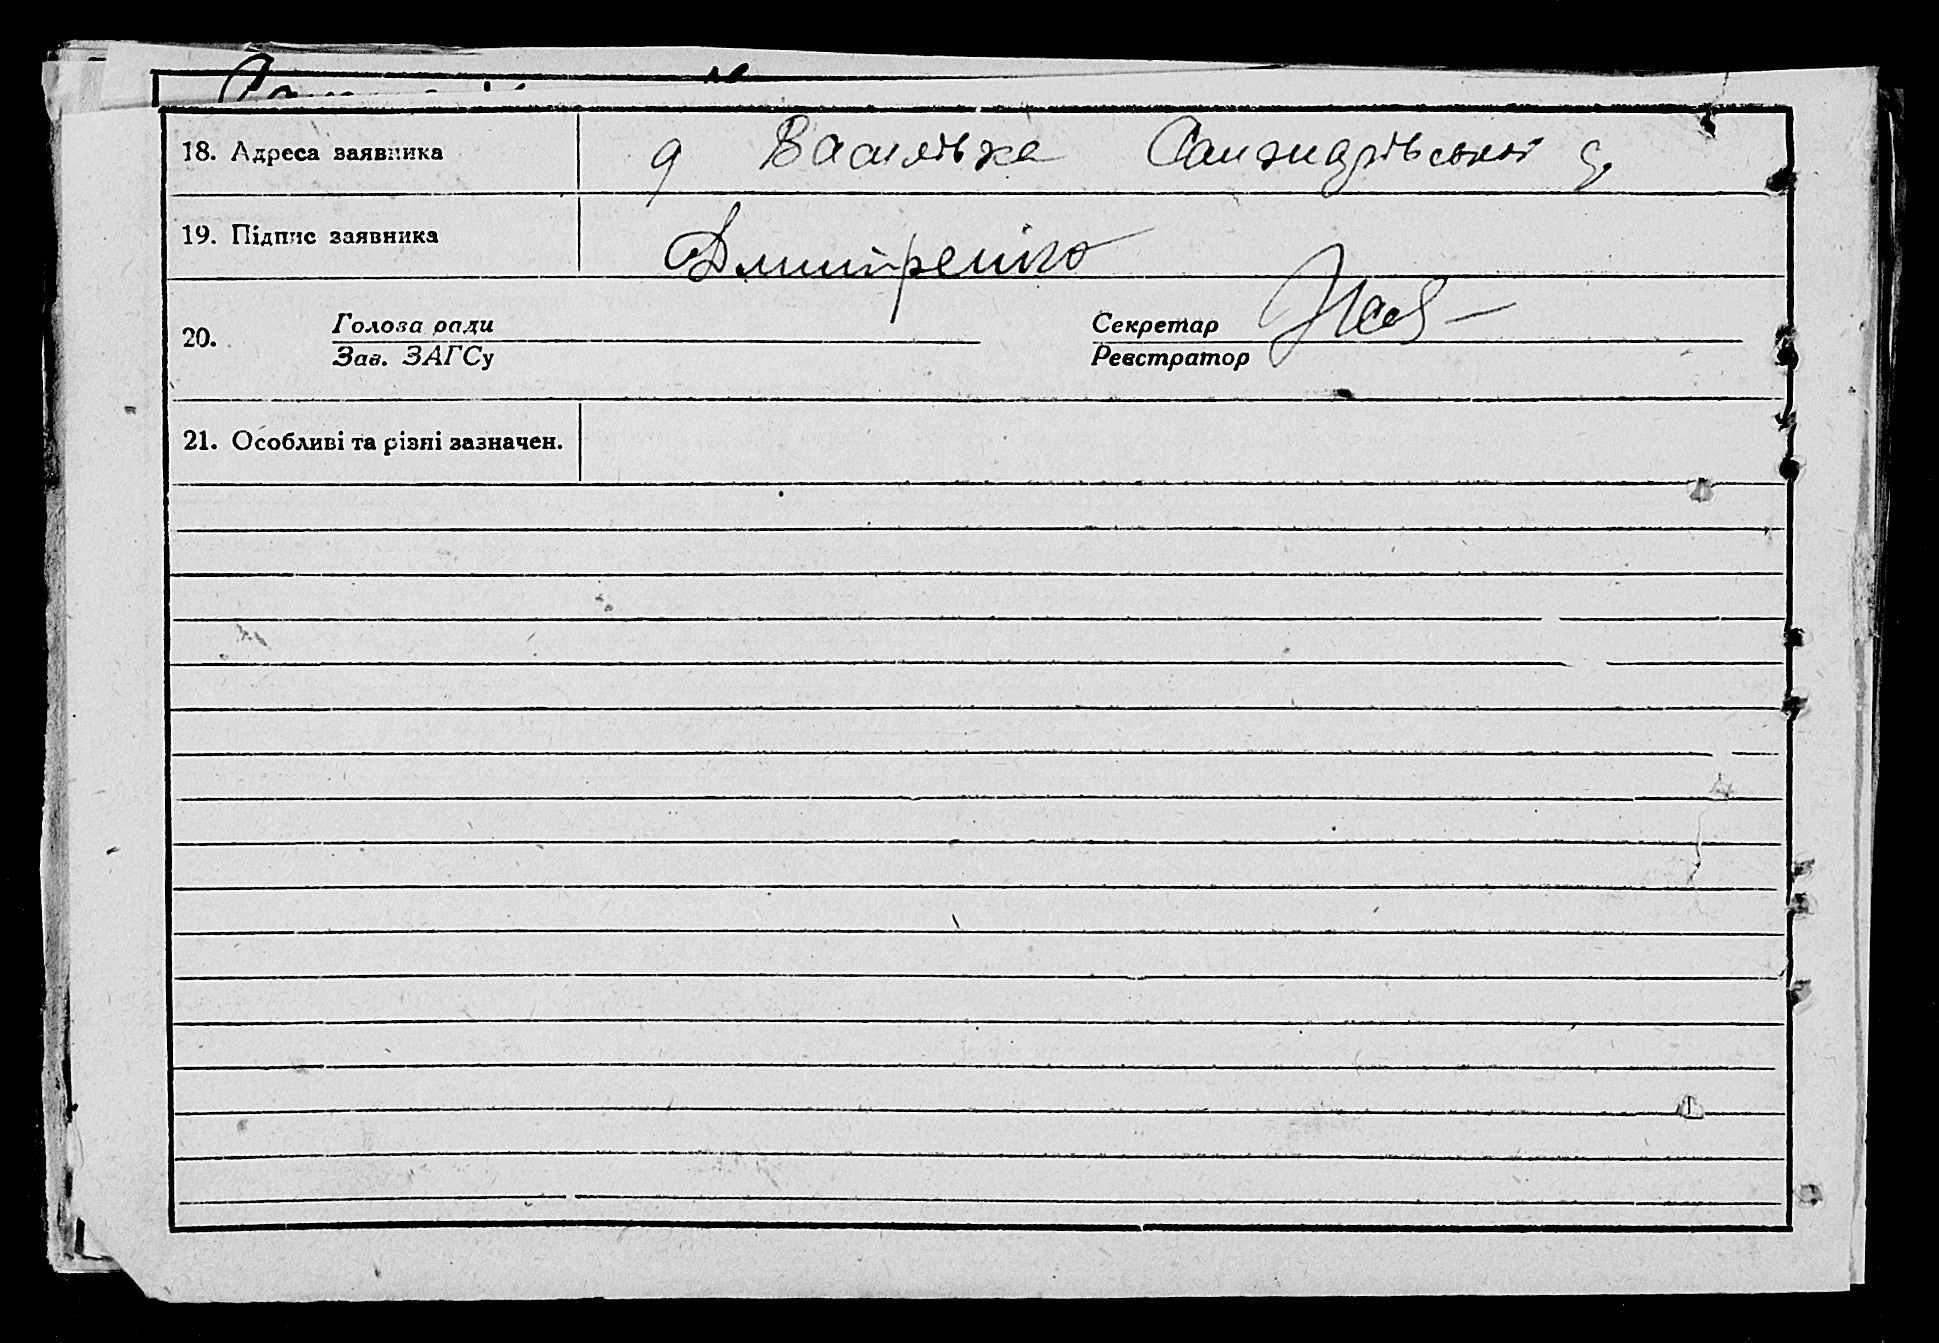 18. Адреса заявника д Василівка Санжидрівської с.
19. Підпис заявника Дмитренко
20. Голова ради Секретар
Зав. ЗАГСу Реєстратор
21. Особливі та різні зазначен.